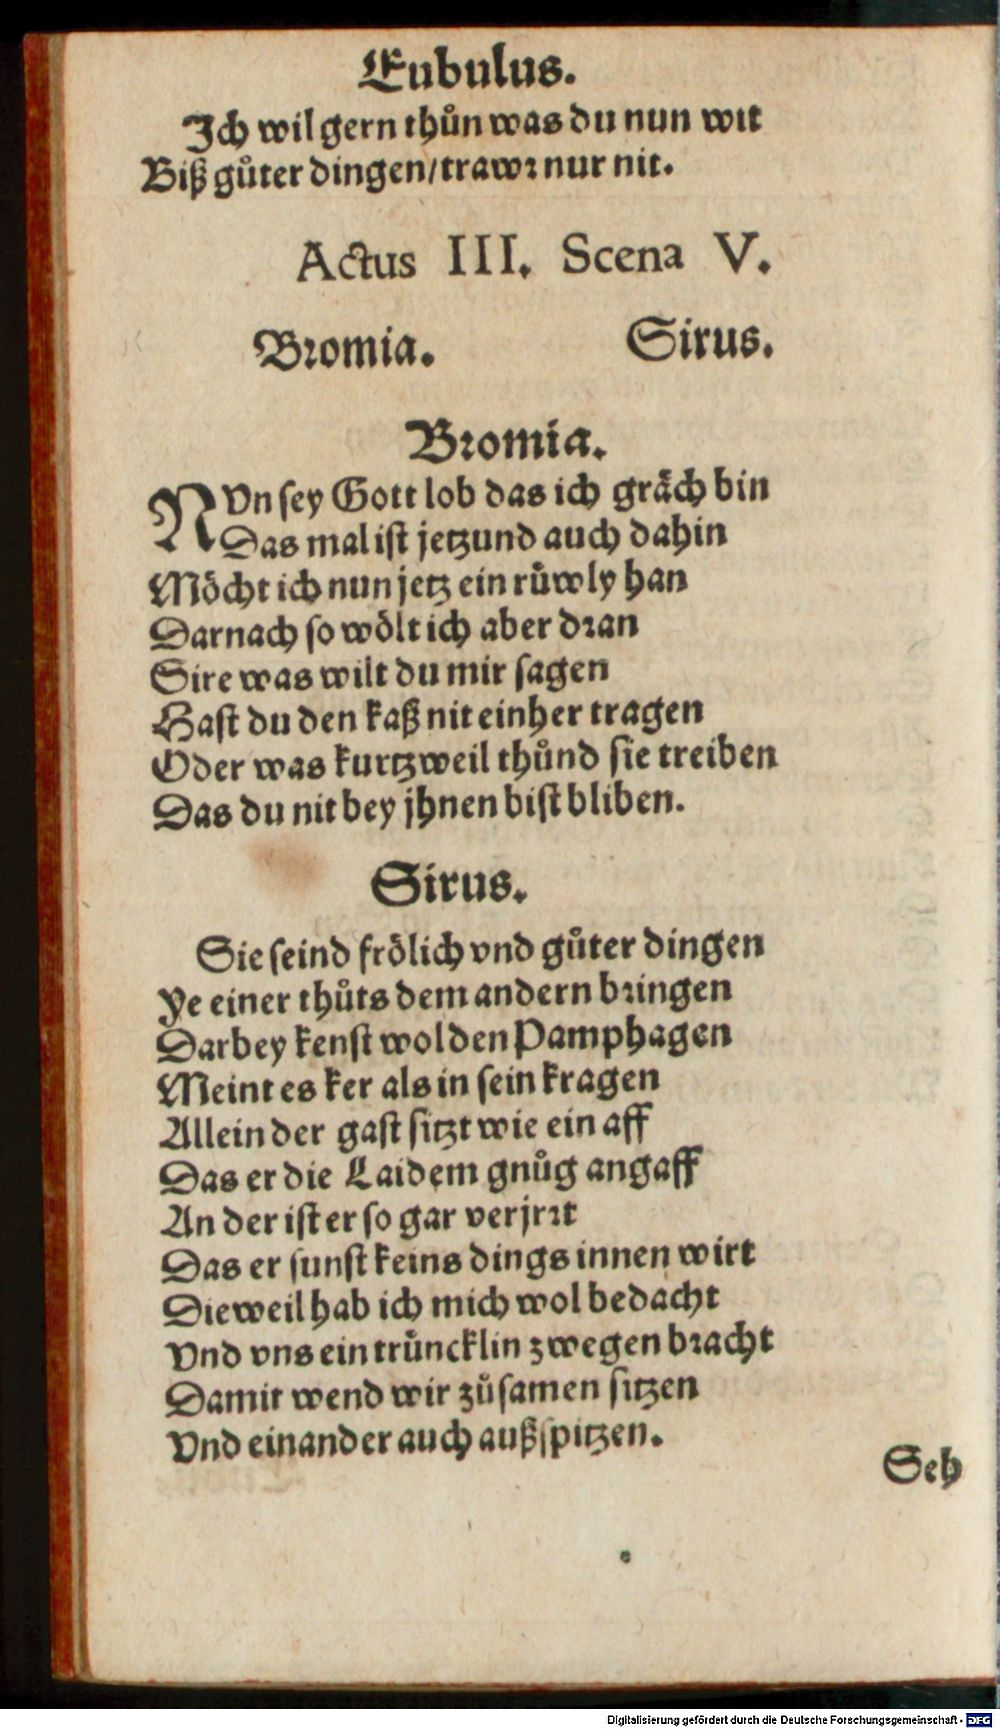 Eubulus.
Ich wil gern thůn was du nun wit
Biß gůter dingen/ trawr nur nit.
Actus III. Scena V.
Bromia. Sirus.
Bromia.
NVn sey Gott lob das ich gräch bin
Das mal ist jetzund auch dahin
Möcht ich nun jetz ein růwly han
Darnach so wölt ich aber dran
Sire was wilt du mir sagen
Hast du den kaß nit einher tragen
Oder was kurtzweil thůnd sie treiben
Das du nit bey jhnen bist bliben.
Sirus.
Sie seind frölich vnd gůter dingen
Ye einer thůts dem andern bringen
Darbey kenst wol den Pamphagen
Meint es ker als in sein kragen
Allein der gast sitzt wie ein aff
Das er die Laidem gnůg angaff
An der ist er so gar verjrrt
Das er sunst keins dings innen wirt
Dieweil hab ich mich wol bedacht
Vnd vns ein trůncklin zwegen bracht
Damit wend wir zůsamen sitzen
Vnd einander auch außspitzen.
Seh
Digitalisierung gefördert durch die Deutsche Forschungsgemeinschaft - DFG